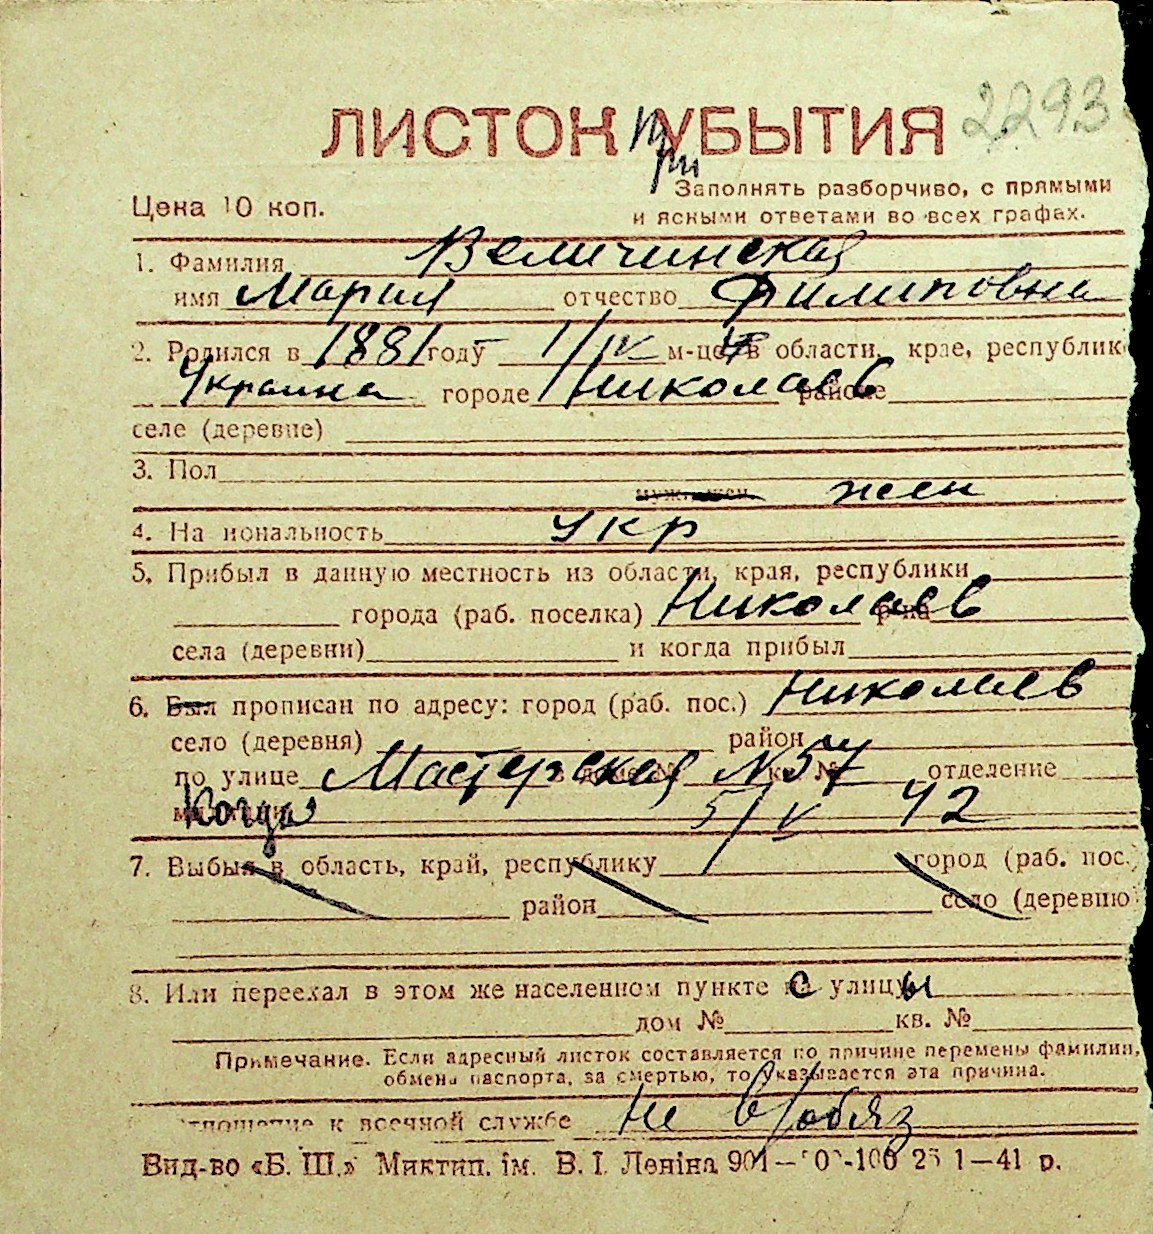 2293
ЛИСТОК УБЫТИЯ
при
Цена 10 коп.
Заполнять разборчиво, с прямыми
и ясными ответами во всех графах.
1. Фамилия Величинская
имя Мария отчество Филиповна
2. Родился в 1881 году 1/IV м-це в области, крае, республик
Украина городе Николаев районе
селе (деревне)
3. Пол
муж. жен. жен
4. Национальность укр
5. Прибыл в данную местность из области, края, республики
города (раб. поселка) Николаев р-на
села (деревни) и когда прибыл
6. Был прописан по адресу: город (раб. пос.) Николаев
село (деревня) район
по улице Мастерская в доме № N 57 кв. № отделение
Когда 5/V 42
7. Выбыл в область, край, республику город (раб. пос.)
район село (деревню
8. Или переехал в этом же населенном пункте с улицы
дом № кв. №
Примечание. Если адресный листок составляется по причине перемены фамилии,
обмена паспорта, за смертью, то указывается эта причина.
отношение к военной службе Не в/обяз
Вид-во «Б. Ш.» Миктип. ім. В. І. Леніна 901— 25 1—41 р.